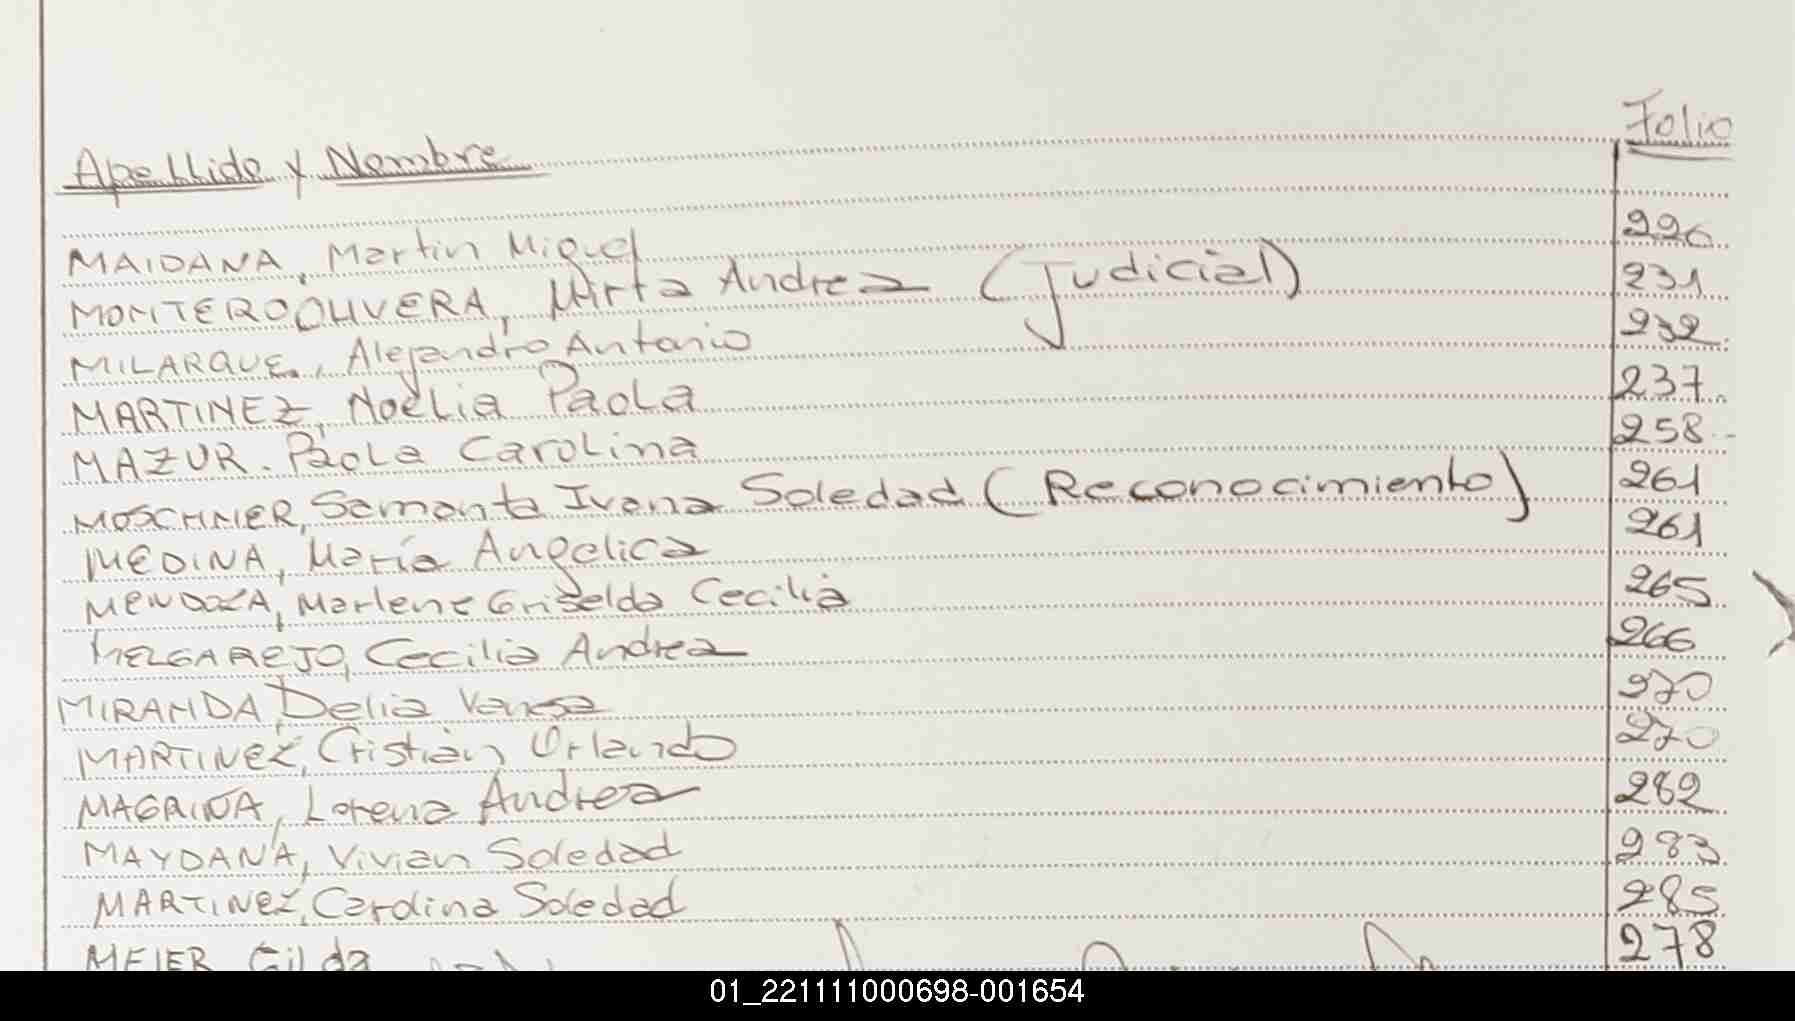 Folio
Apellido y Nombre
MAIDANA, Martin Miguel 226
MONTERO OLIVERA, Mirta Andrea (Judicial) 231
MILARQUE, Alejandro Antonio 232
MARTINEZ, Noelia Paola 237
MAZUR. Paola Carolina 258
MOSCHNER, Samanta Ivana Soledad (Reconocimiento) 261
MEDINA, María Angelica 261
MENDOZA, Marlene Griselda Cecilia 265
MELGAREJO, Cecilia Andrea 266
MIRANDA, Delia Vanesa 270
MARTINEZ, Cristian Orlando 270
MAGRIÑA, Lorena Andrea 282
MAYDANA, Vivian Soledad 283
MARTINEZ, Carolina Soledad 285
MEIER Gilda 278
01_221111000698-001654